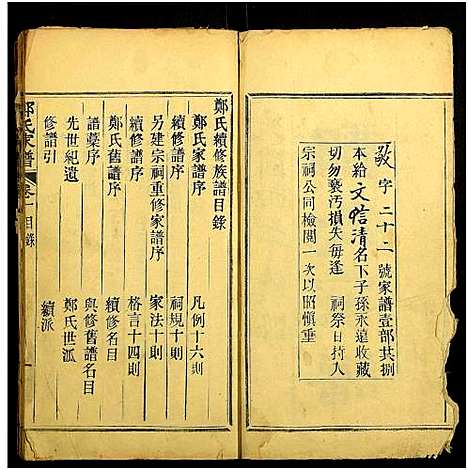 敬字二十二號家譜壹部共捌
本給文信清名下子孫永遠收藏
切勿褻污損失每逢 祠祭日持入
宗祠公同檢閱一次以昭慎重
鄭氏續修族譜目錄
鄭氏家譜序 凡例十六則
續修譜序 祠規十則
另建宗祠重修家譜序 家法十則
續修譜序 格言十四則
鄭氏舊譜序 續修名目
譜藁序 與修舊譜名目
先世紀遺 鄭氏世派
修譜引 續派
鄭氏家譜 卷一 目錄 一